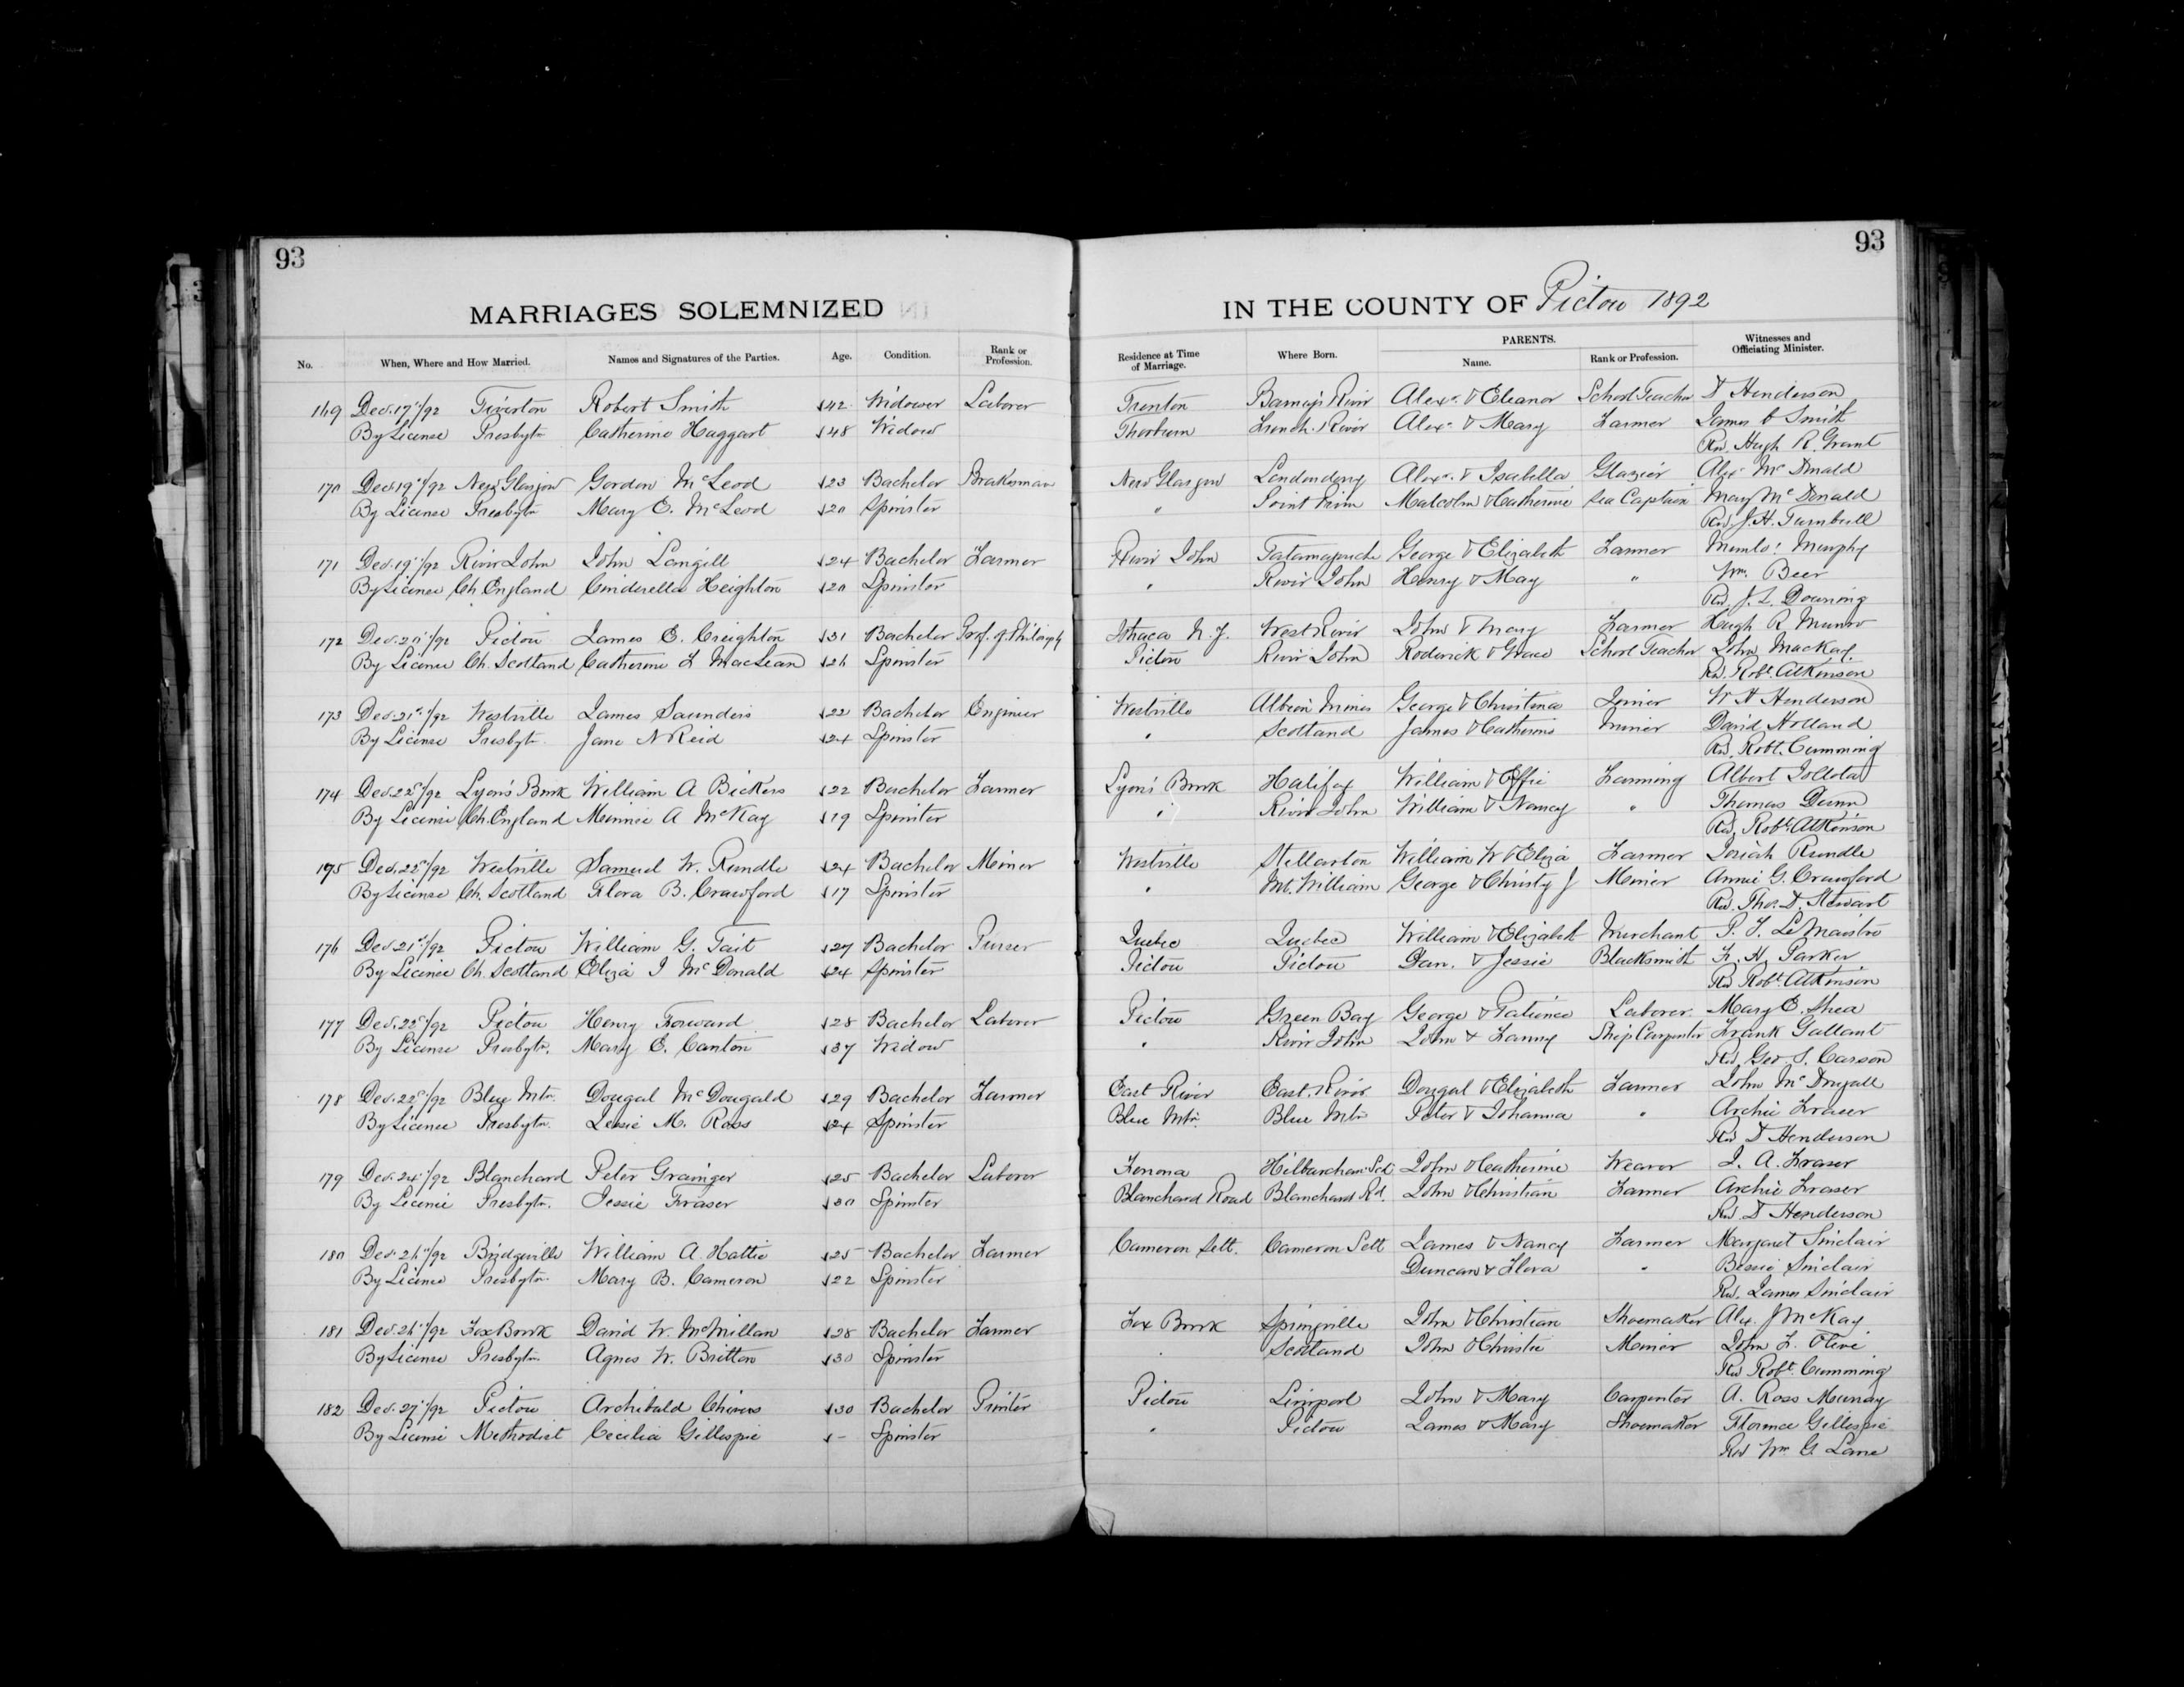 93
93
MARRIAGES SOLEMNIZED IN THE COUNTY OF Pictou 1892
No. When, Where and How Married. Names and Signatures of the Parties. Age. Condition. Rank or Profession. Residence at Time of Marriage. Where Born. PARENTS. Name. Rank or Profession. Witnesses and Officiating Minister.
169 Dec. 17/92 Tiverton Robert Smith 42 Widower Laborer Trenton Barney's River Alexr. & Eleanor School Teacher D Henderson
By License Presbytn Catherine Haggart 48 Widow Thorburn French River Alexr. & Mary Farmer James C Smith
Rev. Hugh R. Grant
170 Dec. 19/92 New Glasgow Gordon McLeod 23 Bachelor Brakesman New Glasgow Londonderry Alexr. & Isabella Glazier Alexr McDonald
By License Presbytn Mary E. McLeod 20 Spinster " Point Prim Malcolm & Catherine Sea Captain Mary McDonald
Rev. J. H. Turnbull
171 Dec. 19/92 River John John Langill 24 Bachelor Farmer River John Tatamagouche George & Elizabeth Farmer Murphy
By License Ch. England Cinderella Heighton 20 Spinster " River John Henry & May " Wm. Beer
Rev. J. L. Downing
172 Dec. 20/92 Pictou James E. Creighton 31 Bachelor Prof. of Philosophy Ithaca N. Y. West River John & Mary Farmer Hugh R Munro
By License Ch. Scotland Catherine F MacLean 26 Spinster Pictou River John Roderick & Grace School Teacher John MacKay
Rev. Robt. Atkinson
173 Dec. 21st/92 Westville James Saunders 22 Bachelor Engineer Westville Albion Mines George & Christena Joiner W H Henderson
By License Presbytn. Jane N Reid 24 Spinster " Scotland James & Catherine Miner David Holland
Rev. Robt. Cumming
174 Dec. 22d/92 Lyon's Brook William A Bickers 22 Bachelor Farmer Lyon's Brook Halifax William & Effie Farming Albert
By License Ch. England Minnie A McKay 19 Spinster " River John William & Nancy " Thomas Dunn
Rev. Robt. Atkinson
175 Dec. 22d/92 Westville Samuel W. Rundle 24 Bachelor Miner Westville Stellarton William W & Eliza Farmer Josiah Rundle
By License Ch. Scotland Flora B. Crawford 17 Spinster " Mt. William George & Christy J Miner Annie G. Crawford
Rev. Thos. D. Stewart
176 Dec. 21st/92 Pictou William G. Tait 27 Bachelor Purser Quebec Quebec William & Elizabeth Merchant P. F. LeMaistre
By License Ch. Scotland Eliza J McDonald 24 Spinster Pictou Pictou Dan. & Jessie Blacksmith F. H. Parker
Rev Robt. Atkinson
177 Dec. 22d/92 Pictou Henry Forward 28 Bachelor Laborer Pictou Green Bay George & Patience Laborer. Mary E. Shea
By License Presbytn. Mary E. Canton 37 Widow " River John John & Fanny Ship Carpenter Frank Gallant
Rev. Geo. S. Carson
178 Dec. 22d/92 Blue Mtn. Dougal McDougald 29 Bachelor Farmer East River East River Dougal & Elizabeth Farmer John McDougall
By License Presbytn. Jessie M. Ross 24 Spinster Blue Mtn. Blue Mtn Peter & Johanna " Archie Fraser
Rev D Henderson
179 Dec. 24/92 Blanchard Peter Grainger 25 Bachelor Laborer Ferrona Scd. John & Catherine Weaver J. A. Fraser
By License Presbytn. Jessie Fraser 30 Spinster Blanchard Road Blanchard Rd. John & Christian Farmer Archie Fraser
Rev. D Henderson
180 Dec. 26/92 Bridgeville William A. Hattie 25 Bachelor Farmer Cameron Sett. Cameron Sett James & Nancy Farmer Margaret Sinclair
By License Presbytn. Mary B. Cameron 22 Spinster Duncan & Flora " Bessie Sinclair
Rev. James Sinclair
181 Dec. 26/92 Fox Brook David W. McMillan 28 Bachelor Farmer Fox Brook Springville John & Christian Shoemaker Alex. J McKay
By License Presbytn. Agnes W. Britton 30 Spinster " Scotland John & Christie Miner John F. Olive
Rev Robt. Cumming
182 Dec. 27/92 Pictou Archibald Chivers 30 Bachelor Printer Pictou Liverpool John & Mary Carpenter A. Ross Murray
By License Methodist Cecilia Gillespie - Spinster " Pictou James & Mary Shoemaker Florence Gillespie
Rev Wm. G. Lane